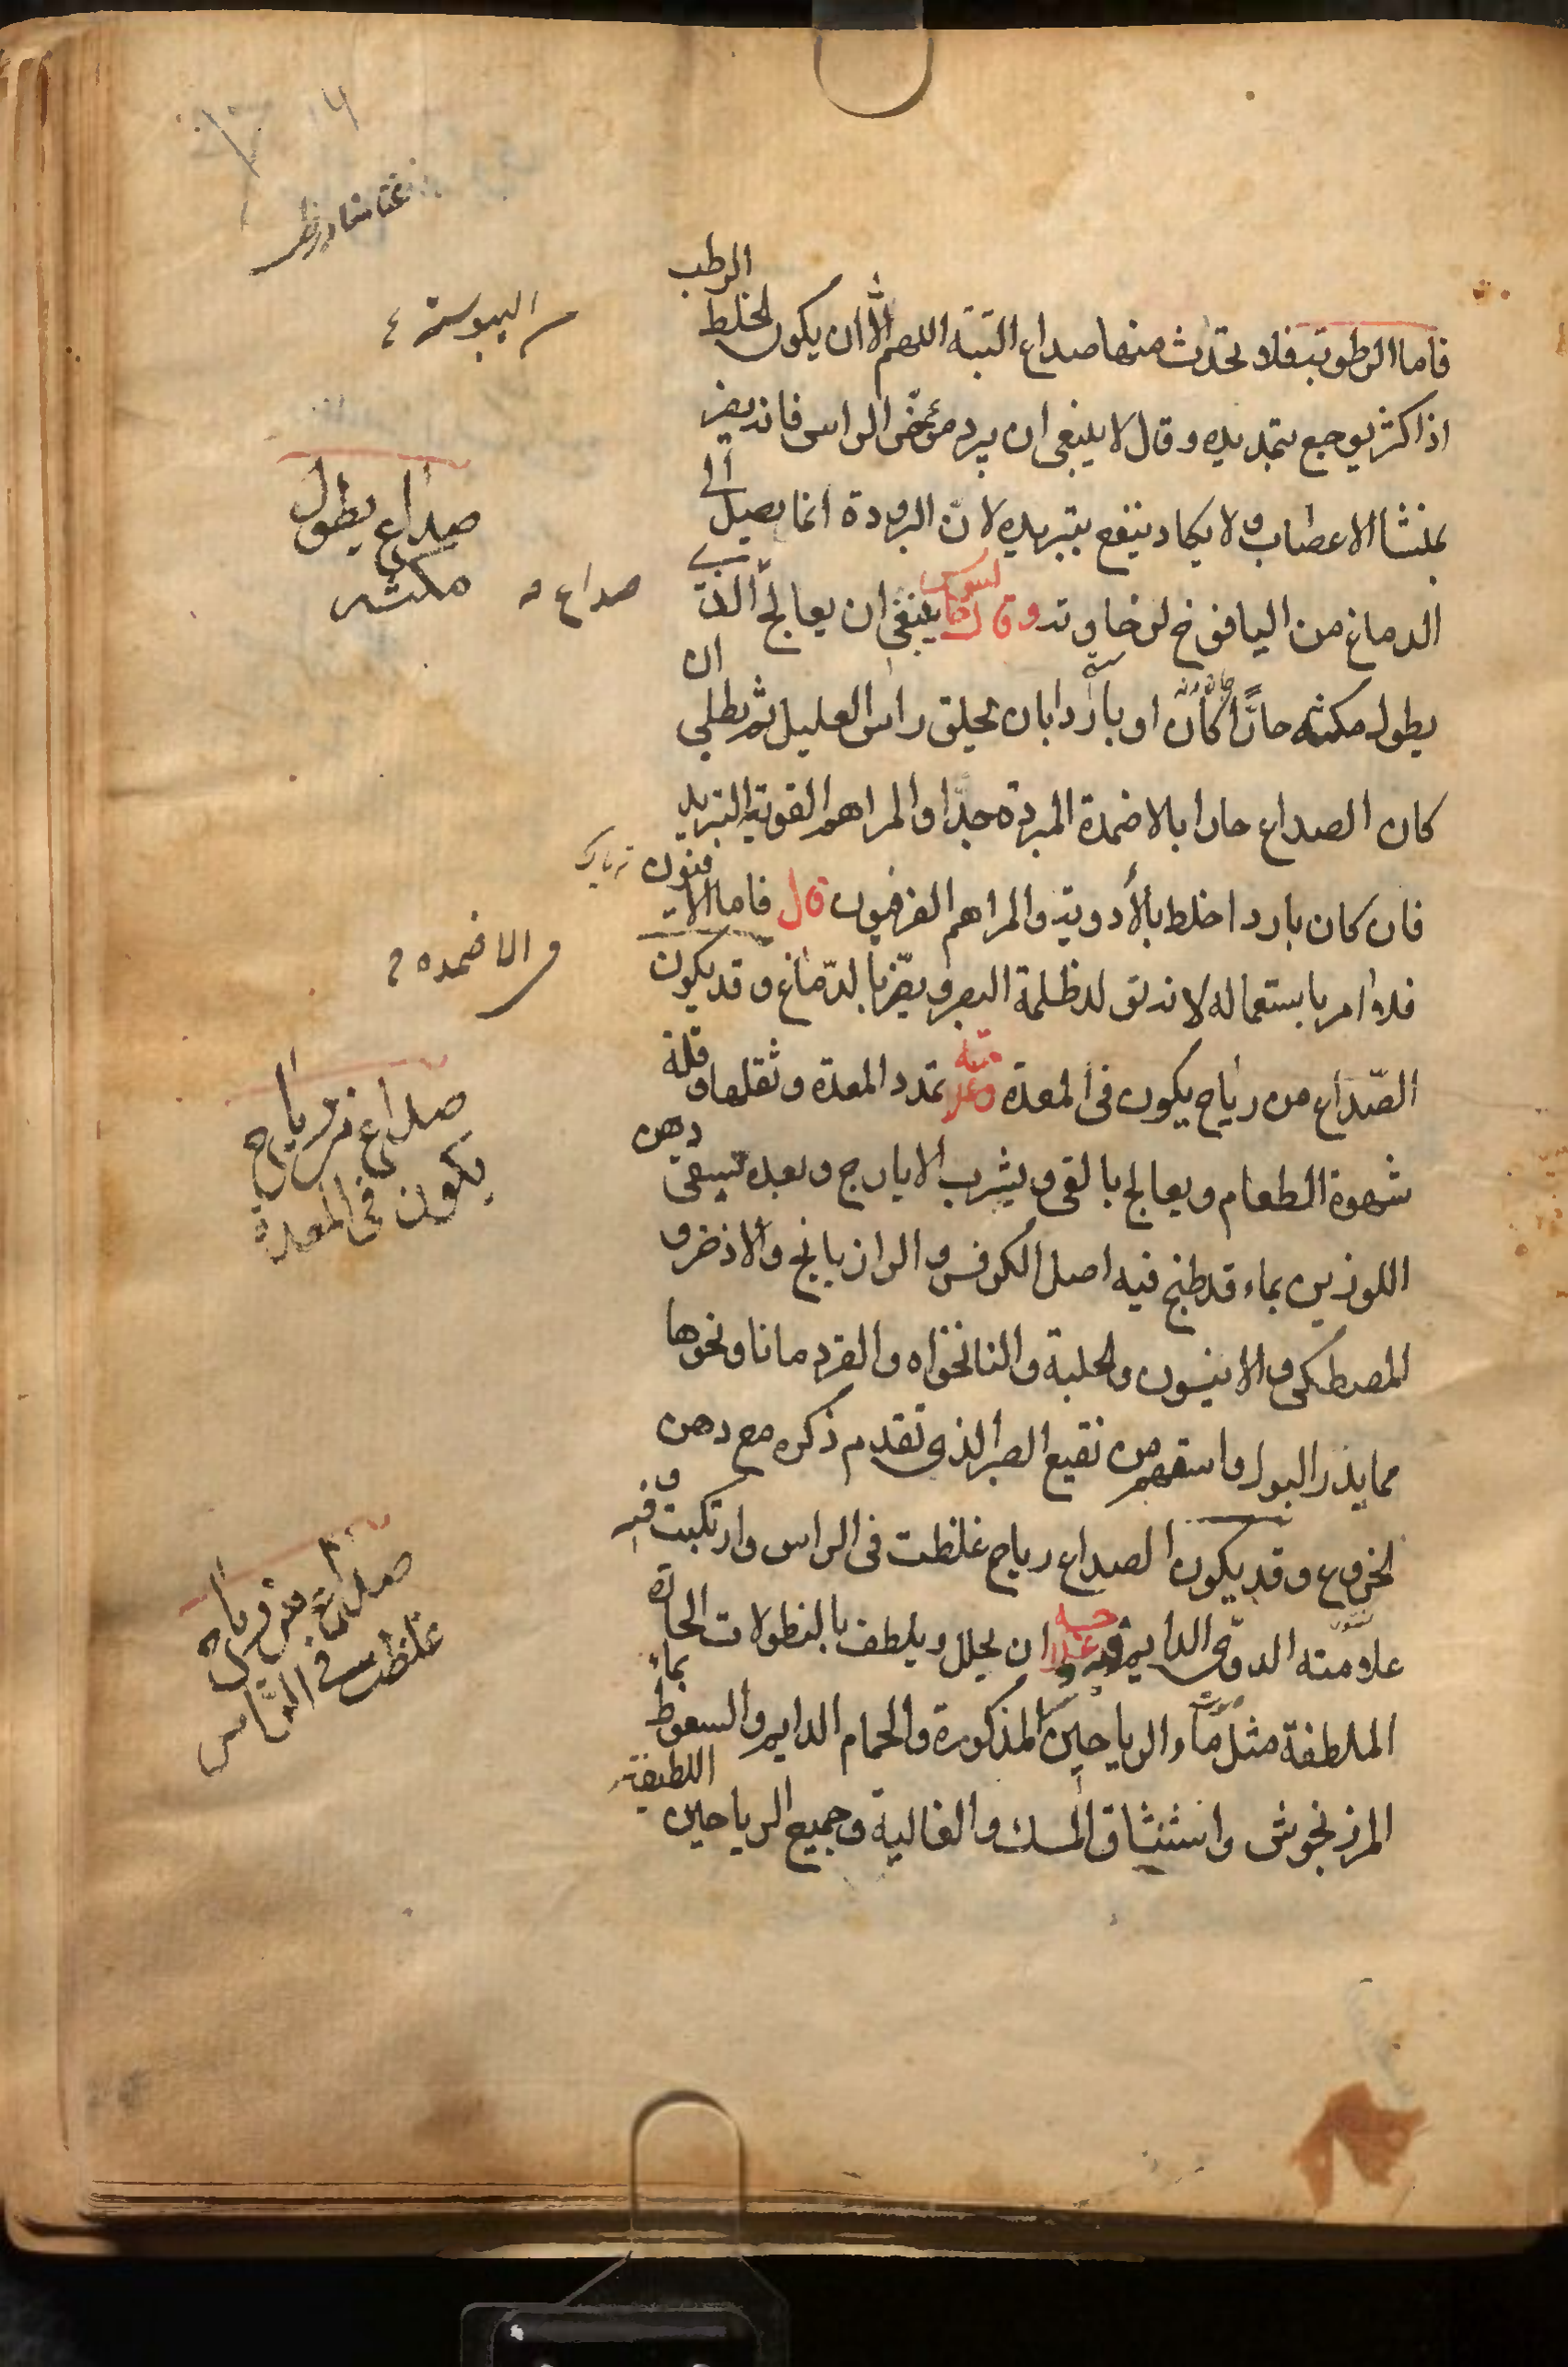 فاما الرطوبة فلا تحدث منها صداع البتة اللهم الا ان يكون الخلط الرطب
اذا كثر يوجع بتمديده وقال لا ينبغى ان يبرد مؤخر الراس فانه يضر
بمنشا الاعصاب ولا يكاد ينفع بتبريده لانّ البرودة انما يصل الى
الدماغ من اليافوخ لرخاوته وقال ينبغى ان يعالج الذى
يطول مكثه حارّا كان او باردا بان يحلق راس العليل ثم يطلى ان
كان الصداع حارا بالاضمدة المبردة جدّا والمراهم القوية التبريد
فان كان باردا خلط بالأدوية والمراهم الفرفيون قال فاما الافيون
فلا امر باستعماله لانه تولد ظلمة البصر ويضّر بالدّماغ وقد يكون
الصّداع من رياح يكون فى المعدة تمدد المعدة وثقلها وقلة
شهوة الطعام ويعالج بالقى ويشرب الايارج وبعده تسقى دهن
اللوزين بماء قد طبخ فيه اصل الكرفس والرازيانج والاذخر و
المصطكى والانيسون والحلبة والنانخواه والقردمانا ونحوها
مما يذر البول واسقهم من نقيع الصبر الذى تقدم ذكره مع دهن
الخروع وقد يكون الصداع رياح غلظت فى الراس وارتكبت فيه و
علامته الدوى الدايم فيه ان يحلل ويلطف بالنطولات الحارة
الملطفة مثل ماء الرياحين المذكورة والحمام الدايم والسعوط بماء
المرزنجوش وانشتشاق المسك والغالية وجميع الرياحين اللطيفة
اليبوسة
صداع يطول
مكثه
صداع
والاضمده
صداع من رياح
يكون فى المعدة
صداع من رياح
غلظت فى الرّاس